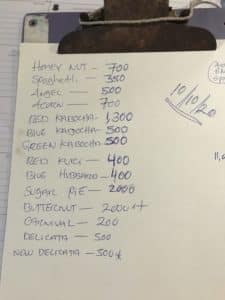 HONEY NUT - 700
Spaghetti - 350
ANGEL - 500
ACORN - 700
RED KABOCHA - 1,300
BLUE KABOCHA - 500
GREEN KABOCHA - 500
RED KURI - 400
BLUE HUBBARD - 400
SUGAR PIE - 2000
BUTTERNUT - 2000 ++
CARNIVAL - 200
DELICATA - 500
NON DELICATA - 500
10/10/20